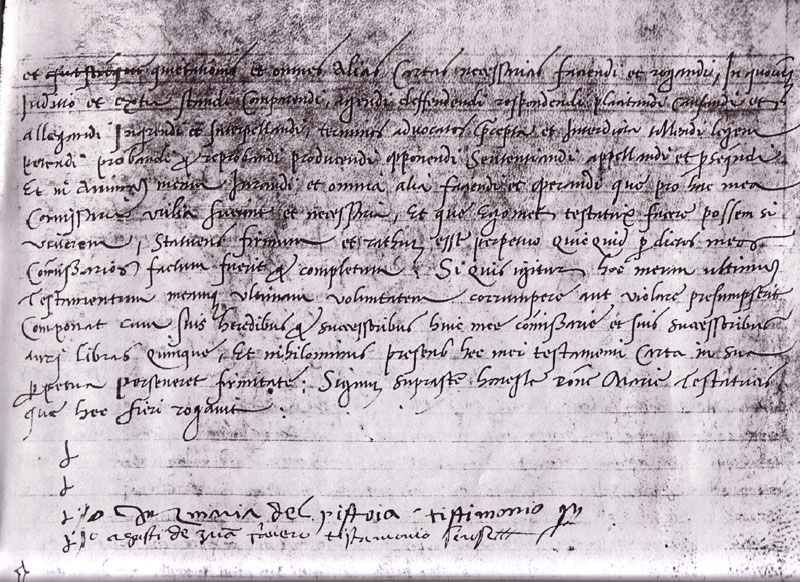 et quietationis et omnes alias Cartas necessarias faciendi et rogandi, In quocumq
Iuditio et extra standi Comparendi, agendi deffendendi respondendi placitandi Causandi et
allegandi Inquirendi et Interpellandi, terminos advocatos precepta et Interdicta tollendi legem
petendi probandi et reprobandi producendi opponendi Sententiandi appellandi et prosequendi
Et in Animam meam Iurandi et omnia alia faciendi et operandi que pro hac mea
Comissaria utilia fuerint et necessaria, Et que Egomet testatrix facere possem si
viverem, Statuens firmum et ratum esse perpetuo quicquid p dictos meos
Comissarios factum fuerit et completum. Si quis igitur hoc meum ultimum
Testamentum meamq ultimam voluntatem corrumpere aut violare presumpserit
Componat cum suis heredibus et successoribus huic mee comissarie et suis successoribus
auri libras quinque, Et nihilominus presens hec mei testamenti Carta in sua
perpetua perseveret firmitate. Signum supraste honeste Done Marie Testatricis
que hec fieri rogavit.
maria del pistoia testimonio
agusti de zuan testamonio